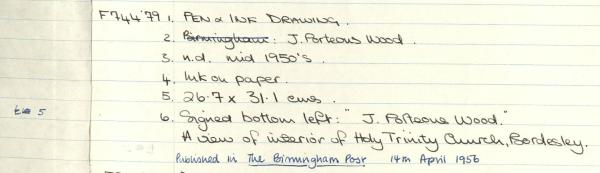 F744'79 1. PEN & INK DRAWING.
2. Birmingham: J. Porteous Wood.
3. n.d. mid 1950's.
4. Ink on paper.
5. 26.7 x 31.1 cms.
6. Signed bottom left: "J. Porteous Wood."
A view of interior of Holy Trinity Church, Bordesley.
Published in The Birmingham Post 14th April 1956